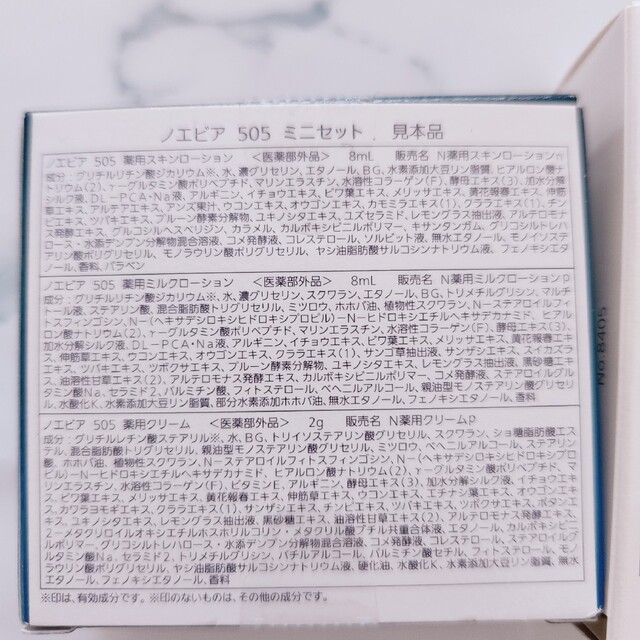 ノエビア 505 ミニセット . 見本品
ノエビア 505 薬用スキンローション <医薬部外品> 8mL 販売名 N薬用スキンローションn
成分：グリチルリチン酸ジカリウム※、水、濃グリセリン、エタノール、BG、水素添加大豆リン脂質、ヒアルロン酸ナ
トリウム(2)、γーグルタミン酸ポリペプチド、マリンエラスチン、水溶性コラーゲン(F)、酵母エキス(3)、加水分解
シルク液、DL-PCA・Na液、アルギニン、イチョウエキス、ビワ葉エキス、メリッサエキス、黄花報春エキス、伸筋草
エキス、アルテアエキス、アンズ果汁、ウコンエキス、オウゴンエキス、カモミラエキス(1)、クララエキス(1)、チン
ピエキス、ツバキエキス、プルーン酵素分解物、ユキノシタエキス、ユズセラミド、レモングラス抽出液、アルテロモナ
ス発酵エキス、グルコシルヘスペリジン、カラメル、カルボキシビニルポリマー、キサンタンガム、グリコシルトレ
ハロース・水添デンプン分解物混合溶液、コメ発酵液、コレステロール、ソルビット液、無水エタノール、モノイソステ
アリン酸ポリグリセリル、モノラウリン酸ポリグリセリル、ヤシ油脂肪酸サルコシンナトリウム液、フェノキシエ
タノール、香料、パラベン
ノエビア 505 薬用ミルクローション <医薬部外品> 8mL 販売名 N薬用ミルクローションp
成分：グリチルリチン酸ジカリウム※、水、濃グリセリン、スクワラン、エタノール、BG、トリメチルグリシン、マルチ
トール液、ステアリン酸、混合脂肪酸トリグリセリル、ミツロウ、ホホバ油、植物性スクワラン、N-ステアロイルフィト
スフィンゴシン、N-(ヘキサデシロキシヒドロキシプロピル)-N-ヒドロキシエチルヘキサデカナミド、ヒアルロ
ン酸ナトリウム(2)、γーグルタミン酸ポリペプチド、マリンエラスチン、水溶性コラーゲン(F)、酵母エキス(3)、
加水分解シルク液、DL-PCA・Na液、アルギニン、イチョウエキス、ビワ葉エキス、メリッサエキス、黄花報春エキ
ス、伸筋草エキス、ウコンエキス、オウゴンエキス、クララエキス(1)、サンゴ草抽出液、サンザシエキス、チンピエキ
ス、ツバキエキス、ツボクサエキス、プルーン酵素分解物、ユキノシタエキス、レモングラス抽出液、黒砂糖エキ
ス、油溶性甘草エキス(2)、アルテロモナス発酵エキス、カルボキシビニルポリマー、コメ発酵液、ステアロイルグル
タミン酸Na、セラミド2、パルミチン酸、フィトステロール、ベヘニルアルコール、親油型モノステアリン酸グリセリ
ル、水酸化K、水素添加大豆リン脂質、部分水素添加ホホバ油、無水エタノール、フェノキシエタノール、香料
ノエビア 505 薬用クリーム <医薬部外品> 2g 販売名 N薬用クリームp
成分：グリチルレチン酸ステアリル※、水、BG、トリイソステアリン酸グリセリル、スクワラン、ショ糖脂肪酸エス
テル、混合脂肪酸トリグリセリル、親油型モノステアリン酸グリセリル、ミツロウ、ベヘニルアルコール、ステアリン
酸、ホホバ油、植物性スクワラン、N-ステアロイルフィトスフィンゴシン、N-(ヘキサデシロキシヒドロキシプロ
ピル)-N-ヒドロキシエチルヘキサデカナミド、ヒアルロン酸ナトリウム(2)、γーグルタミン酸ポリペプチド、マ
リンエラスチン、水溶性コラーゲン(F)、ビタミンE、アルギニン、酵母エキス(3)、加水分解シルク液、イチョウエキ
ス、ビワ葉エキス、メリッサエキス、黄花報春エキス、伸筋草エキス、ウコンエキス、エチナシ葉エキス、オウゴンエキ
ス、カワラヨモギエキス、クララエキス(1)、サンザシエキス、チンピエキス、ツバキエキス、ツボクサエキス、ボタンエ
キス、ユキノシタエキス、レモングラス抽出液、黒砂糖エキス、油溶性甘草エキス(2)、アルテロモナス発酵エキス、
2-メタクリロイルオキシエチルホスホリルコリン・メタクリル酸ブチル共重合体液、エタノール、カルボキシビ
ニルポリマー、グリコシルトレハロース・水添デンプン分解物混合溶液、コメ発酵液、コレステロール、ステアロイルグル
タミン酸Na、セラミド2、トリメチルグリシン、バチルアルコール、パルミチン酸セチル、フィトステロール、モノ
ラウリン酸ポリグリセリル、ヤシ油脂肪酸サルコシンナトリウム液、硬化油、水酸化K、水素添加大豆リン脂質、無水
エタノール、フェノキシエタノール、香料
※印は、有効成分です。※印のないものは、その他の成分です。
No 8405